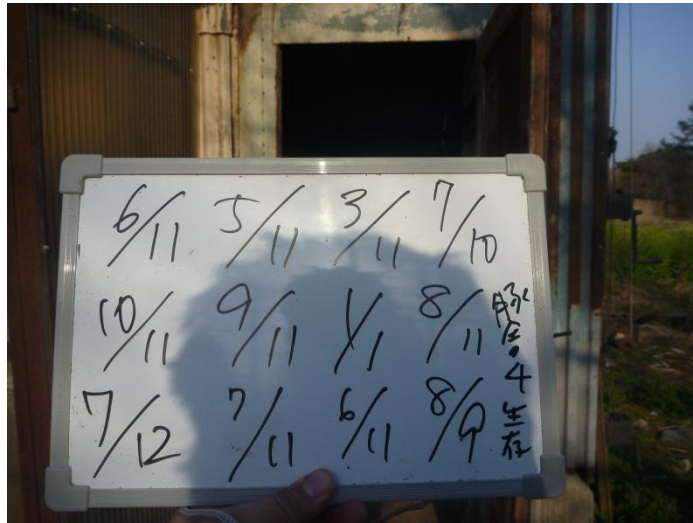 6/11 5/11 3/11 7/10
10/11 9/11 1/1 8/11
7/12 7/11 6/11 8/9
豚舎。4 生存